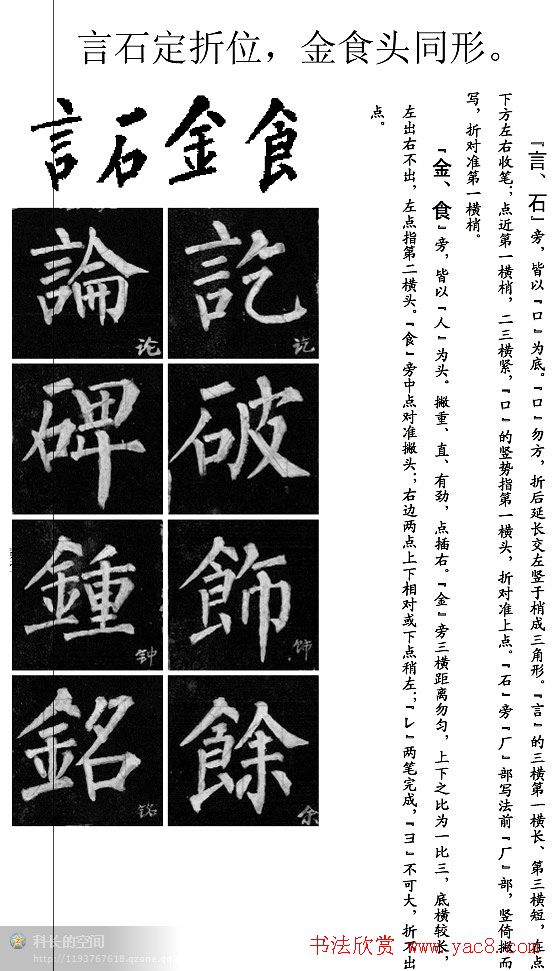 言石定折位，金食头同形。
言石金食
論 訖
论 讫
碑 破
鍾 飾
钟 饰
銘 餘
铭 余
『言、石』旁，皆以『口』为底。『口』勿方，折后延长交左竖于梢成三角形。『言』的三横第一横长、第三横短，在点
下方左右收笔；点近第一横梢，二三横紧，『口』的竖势指第一横头，折对准上点。『石』旁『厂』部写法前『厂』部，竖倚撇而
写，折对准第一横梢。
『金、食』旁，皆以『人』为头。撇重、直、有劲，点插右。『金』旁三横距离勿匀，上下之比为一比三，底横较长，
左出右不出，左点指第二横头。『食』旁中点对准撇头；右边两点上下相对或下点稍左；『レ』两笔完成，『ヨ』不可大，折不出
点。
科长的空间
http://1193767618.qzone.qq
书法欣赏 www.yac8.com